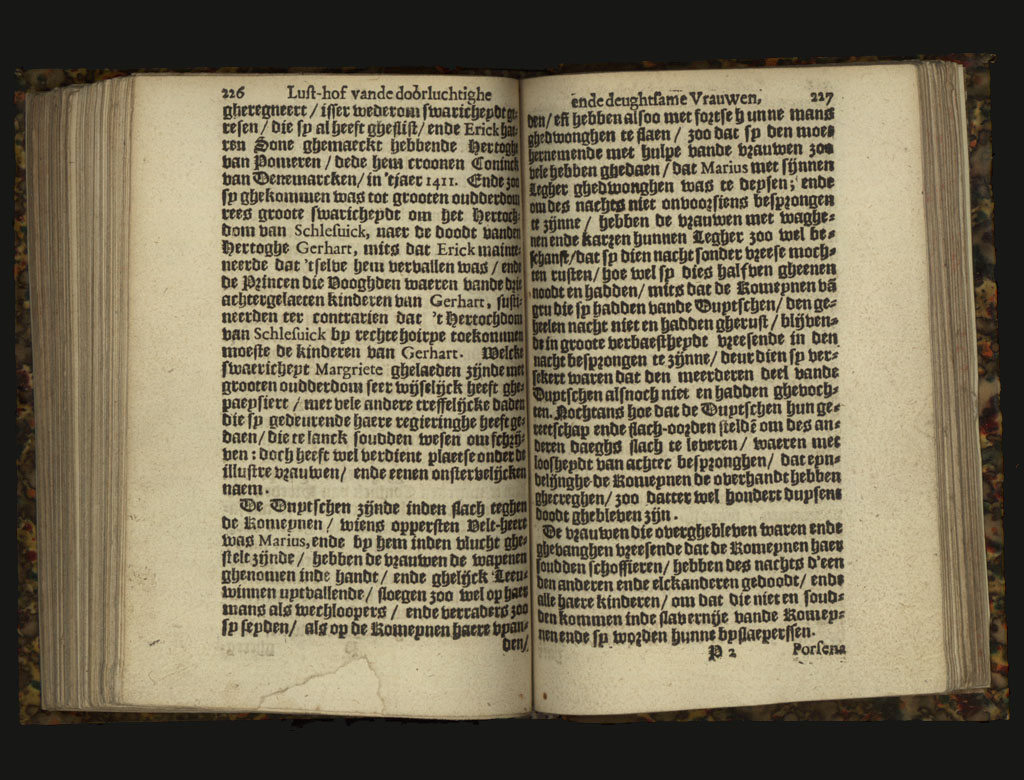 226 Lust-hof vande doorluchtighe
gheregneert / isser wederom swaricheydt ge-
resen / die sy al heeft gheslist / ende Erick ha-
ren Sone ghemaeckt hebbende Hertoghe
van Pomeren / dede hem croonen Coninck
van Denemarcken / in 'tjaer 1411. Ende zoo
sy ghekommen was tot grooten oudderdom
rees groote swaricheydt om het Hertoch-
dom van Schlesuick, naer de doodt vanden
Hertoghe Gerhart, mits dat Erick mainte-
neerde dat 'tselve hem vervallen was / ende
de Princen die Vooghden waeren vande drie
achtergelaeten kinderen van Gerhart, susti-
neerden ter contrarien dat 't Hertochdom
van Schlesuick by rechte hoirye toekommen
moeste de kinderen van Gerhart. Welcke
swaericheyt Margriete ghelaeden zijnde met
grooten oudderdom seer wijselijck heeft ghe-
paeysiert / met vele andere treffelijcke daden
die sy gedeurende haere regieringhe heeft ge-
daen / die te lanck soudden wesen om schrij-
ven : doch heeft wel verdient plaetse onder de
illustre vrauwen / ende eenen onstervelijcken
naem.
De Duytschen zijnde inden slach teghen
de Romeynen / wiens oppersten Velt-heere
was Marius, ende by hem inden vlucht ghe-
stelt zijnde / hebben de vrauwen de wapenen
ghenomen inde handt / ende ghelijck Leeu-
winnen uytvallende / sloegen zoo wel op haer
mans als wechloopers / ende verraders zoo
sy seyden / als op de Romeynen haere vyan-
den/
ende deughtsame Vrauwen, 227
den / eñ hebben alsoo met fortse hunne mans
ghedwonghen te slaen / zoo dat sy den moet
hernemende met hulpe vande vrauwen zoo
vele hebben ghedaen / dat Marius met sijnnen
Legher ghedwonghen was te deysen ; ende
om des nachts niet onvoorsiens besprongen
te zijnne / hebben de vrauwen met waghe-
nen ende karren hunnen Legher zoo wel be-
schanst / dat sy dien nacht sonder vreese moch-
ten rusten / hoe wel sy dies halfven gheenen
noodt en hadden / mits dat de Romeynen vā
gru die sy hadden vande Duytschen / den ge-
heelen nacht niet en hadden gherust / blijven-
de in groote verbaestheydt vreesende in den
nacht besprongen te zijnne / deur dien sy ver-
sekert waren dat den meerderen deel vande
Duytschen alsnoch niet en hadden ghevoch-
ten. Nochtans hoe dat de Duytschen hun ge-
reetschap ende slach-oorden steldē om des an-
deren daeghs slach te leveren / waeren met
loosheydt van achter bespronghen / dat eyn-
delijnghe de Romeynen de overhandt hebben
ghecreghen / zoo datter wel hondert duysent
doodt ghebleven zijn.
De vrauwen die overghebleven waren ende
ghevanghen vreesende dat de Romeynen haer
soudden schoffieren / hebben des nachts d'een
den anderen ende elckanderen gedoodt / ende
alle haere kinderen / om dat die niet en soud-
den kommen inde slavernije vande Romey-
nen ende sy worden hunne byslaeperssen.
P 2 Porsena